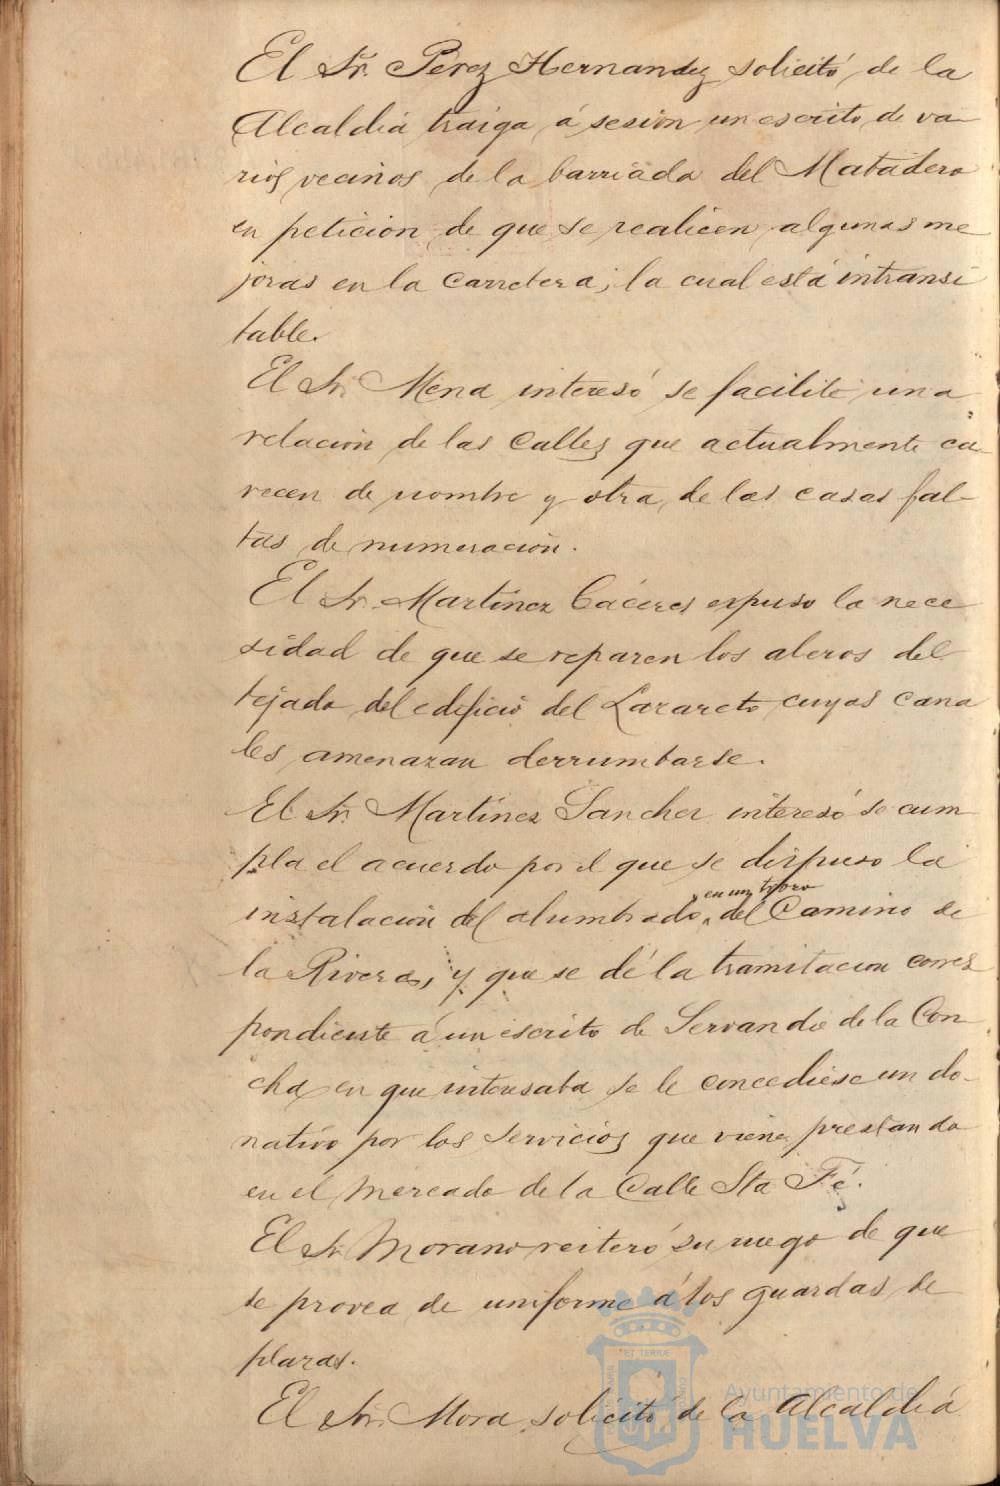 El Sr. Pérez Hernandez solicitó de la
Alcaldia traiga á sesion un escrito de va-
rios vecinos de la barriada del Matadero
en peticion de que se realicen algunas me
joras en la carretera, la cual está intransi
table.
El Sr. Mena interesó se facilite una
relacion de las calles que actualmente ca-
recen de nombre y otra de las casas fal-
tas de numeracion.
El Sr. Martinez Cáceres expuso la nece
sidad de que se reparen los aleros del
tejado del edificio del Lazareto cuyas cana
les amenazan derrumbarse.
El Sr. Martinez Sanchez interesó se cum
pla el acuerdo por el que se dispuso la
en un trozo
instalacion del alumbrado del Camino de
la Rivera, y que se dé la tramitacion corres
pondiente á un escrito de Servando de la Con
cha en que interesaba se le concediese un do-
nativo por los servicios que viene prestando
en el Mercado de la Calle Sta Fé.
El Sr Morano reiteró su ruego de que
se provea de uniforme á los guardas de
plazas.
El Sr. Mora solicitó de la Alcaldiá
ET TERRÆ
Ayuntamiento de
HUELVA